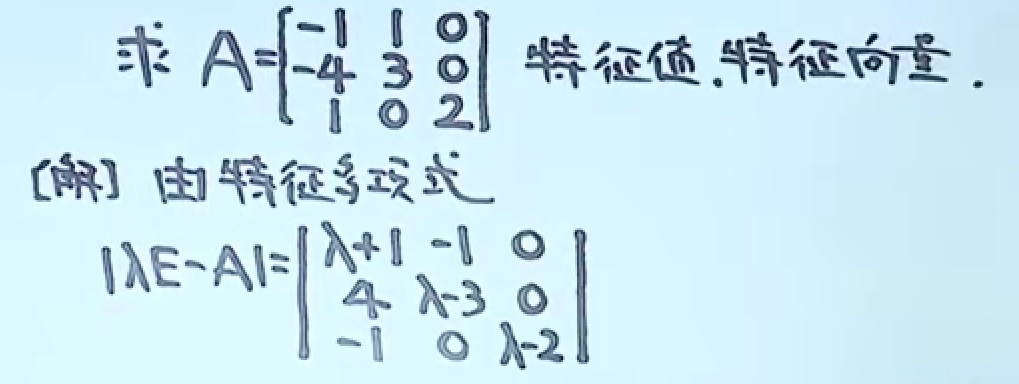 求 A=[-1 1 0; -4 3 0; 1 0 2] 特征值.特征向量.
[解] 由特征多项式
|λE-A|=|λ+1 -1 0; 4 λ-3 0; -1 0 λ-2|